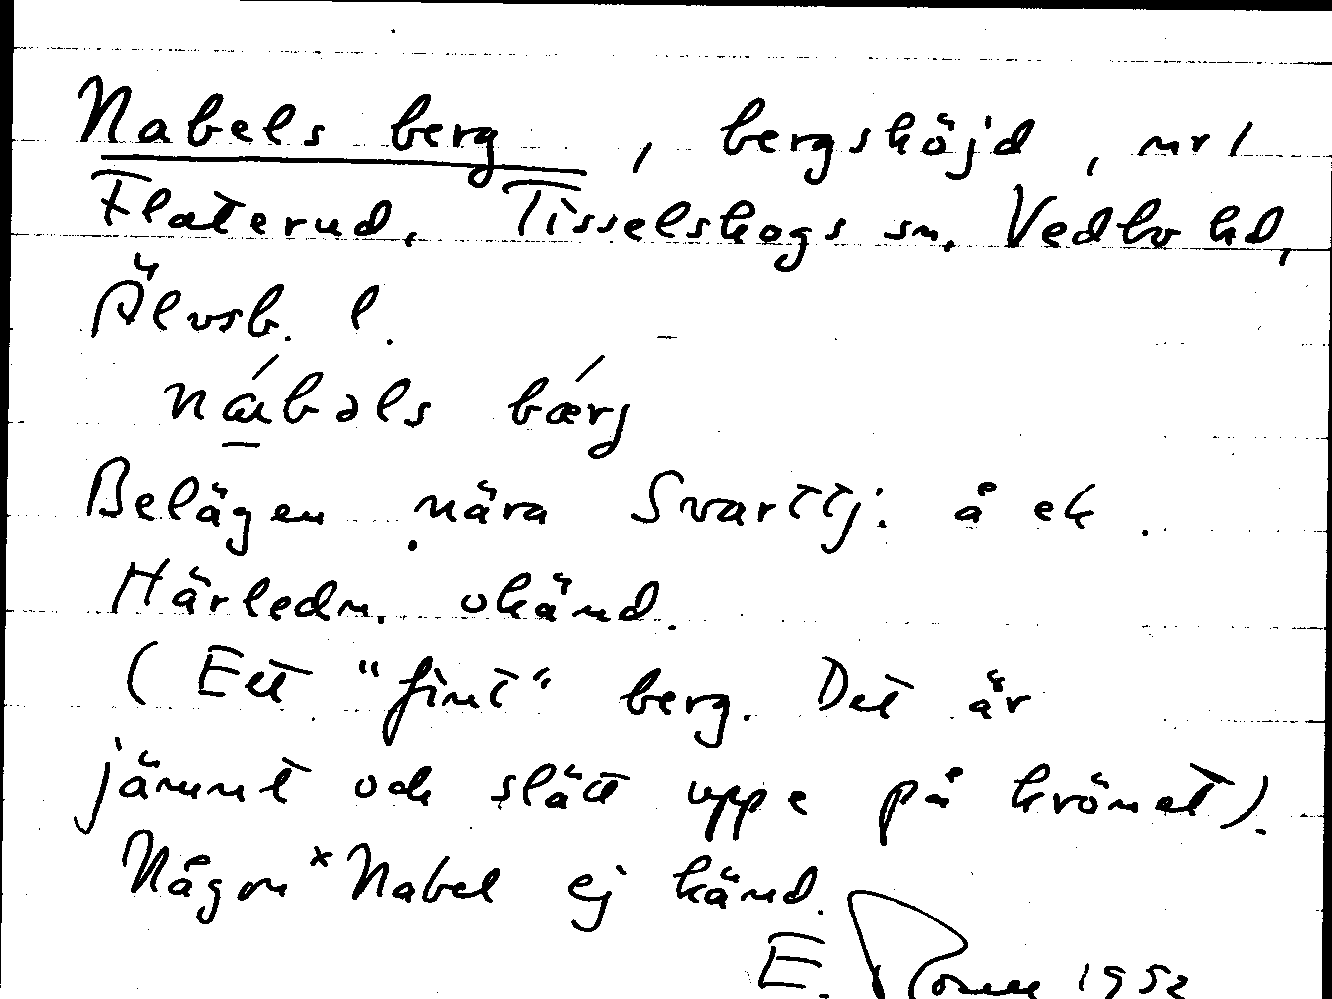 Nabels berg, bergshöjd, nr 1
Flaterud, Tisselskogs sn, Vedbo hd,
Älvsb. l.
bærj
Belägen nära Svarttj: å ek.
Härledn. okänd.
(Ett "fint" berg. Det är
jämnt och slätt uppe på krönet).
Någon *Nabel ej känd.
E. 1952